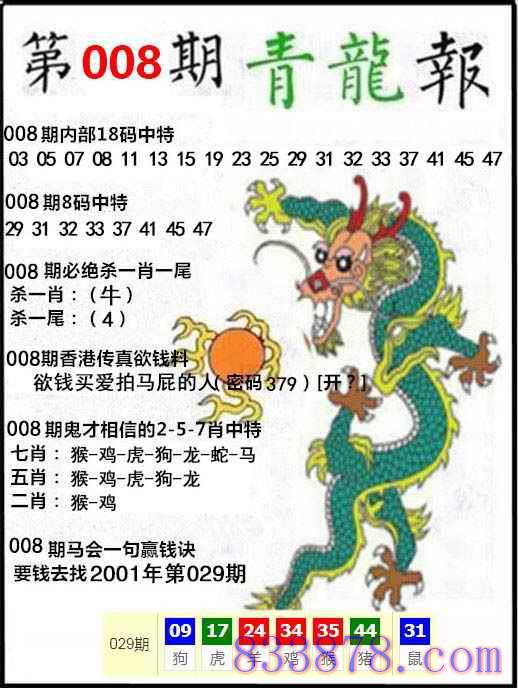 第008期青龍報
008期内部18码中特
03 05 07 08 11 13 15 19 23 25 29 31 32 33 37 41 45 47
008期8码中特
29 31 32 33 37 41 45 47
008期必绝杀一肖一尾
杀一肖：（牛）
杀一尾：（4）
008期香港传真欲钱料
欲钱买爱拍马屁的人（密码379）[开？]
008期鬼才相信的2-5-7肖中特
七肖：猴-鸡-虎-狗-龙-蛇-马
五肖：猴-鸡-虎-狗-龙
二肖：猴-鸡
008期马会一句赢钱诀
要钱去找2001年第029期
029期 09 17 24 34 35 44 31
狗 虎 羊 鸡 猴 猪 鼠
833878.com